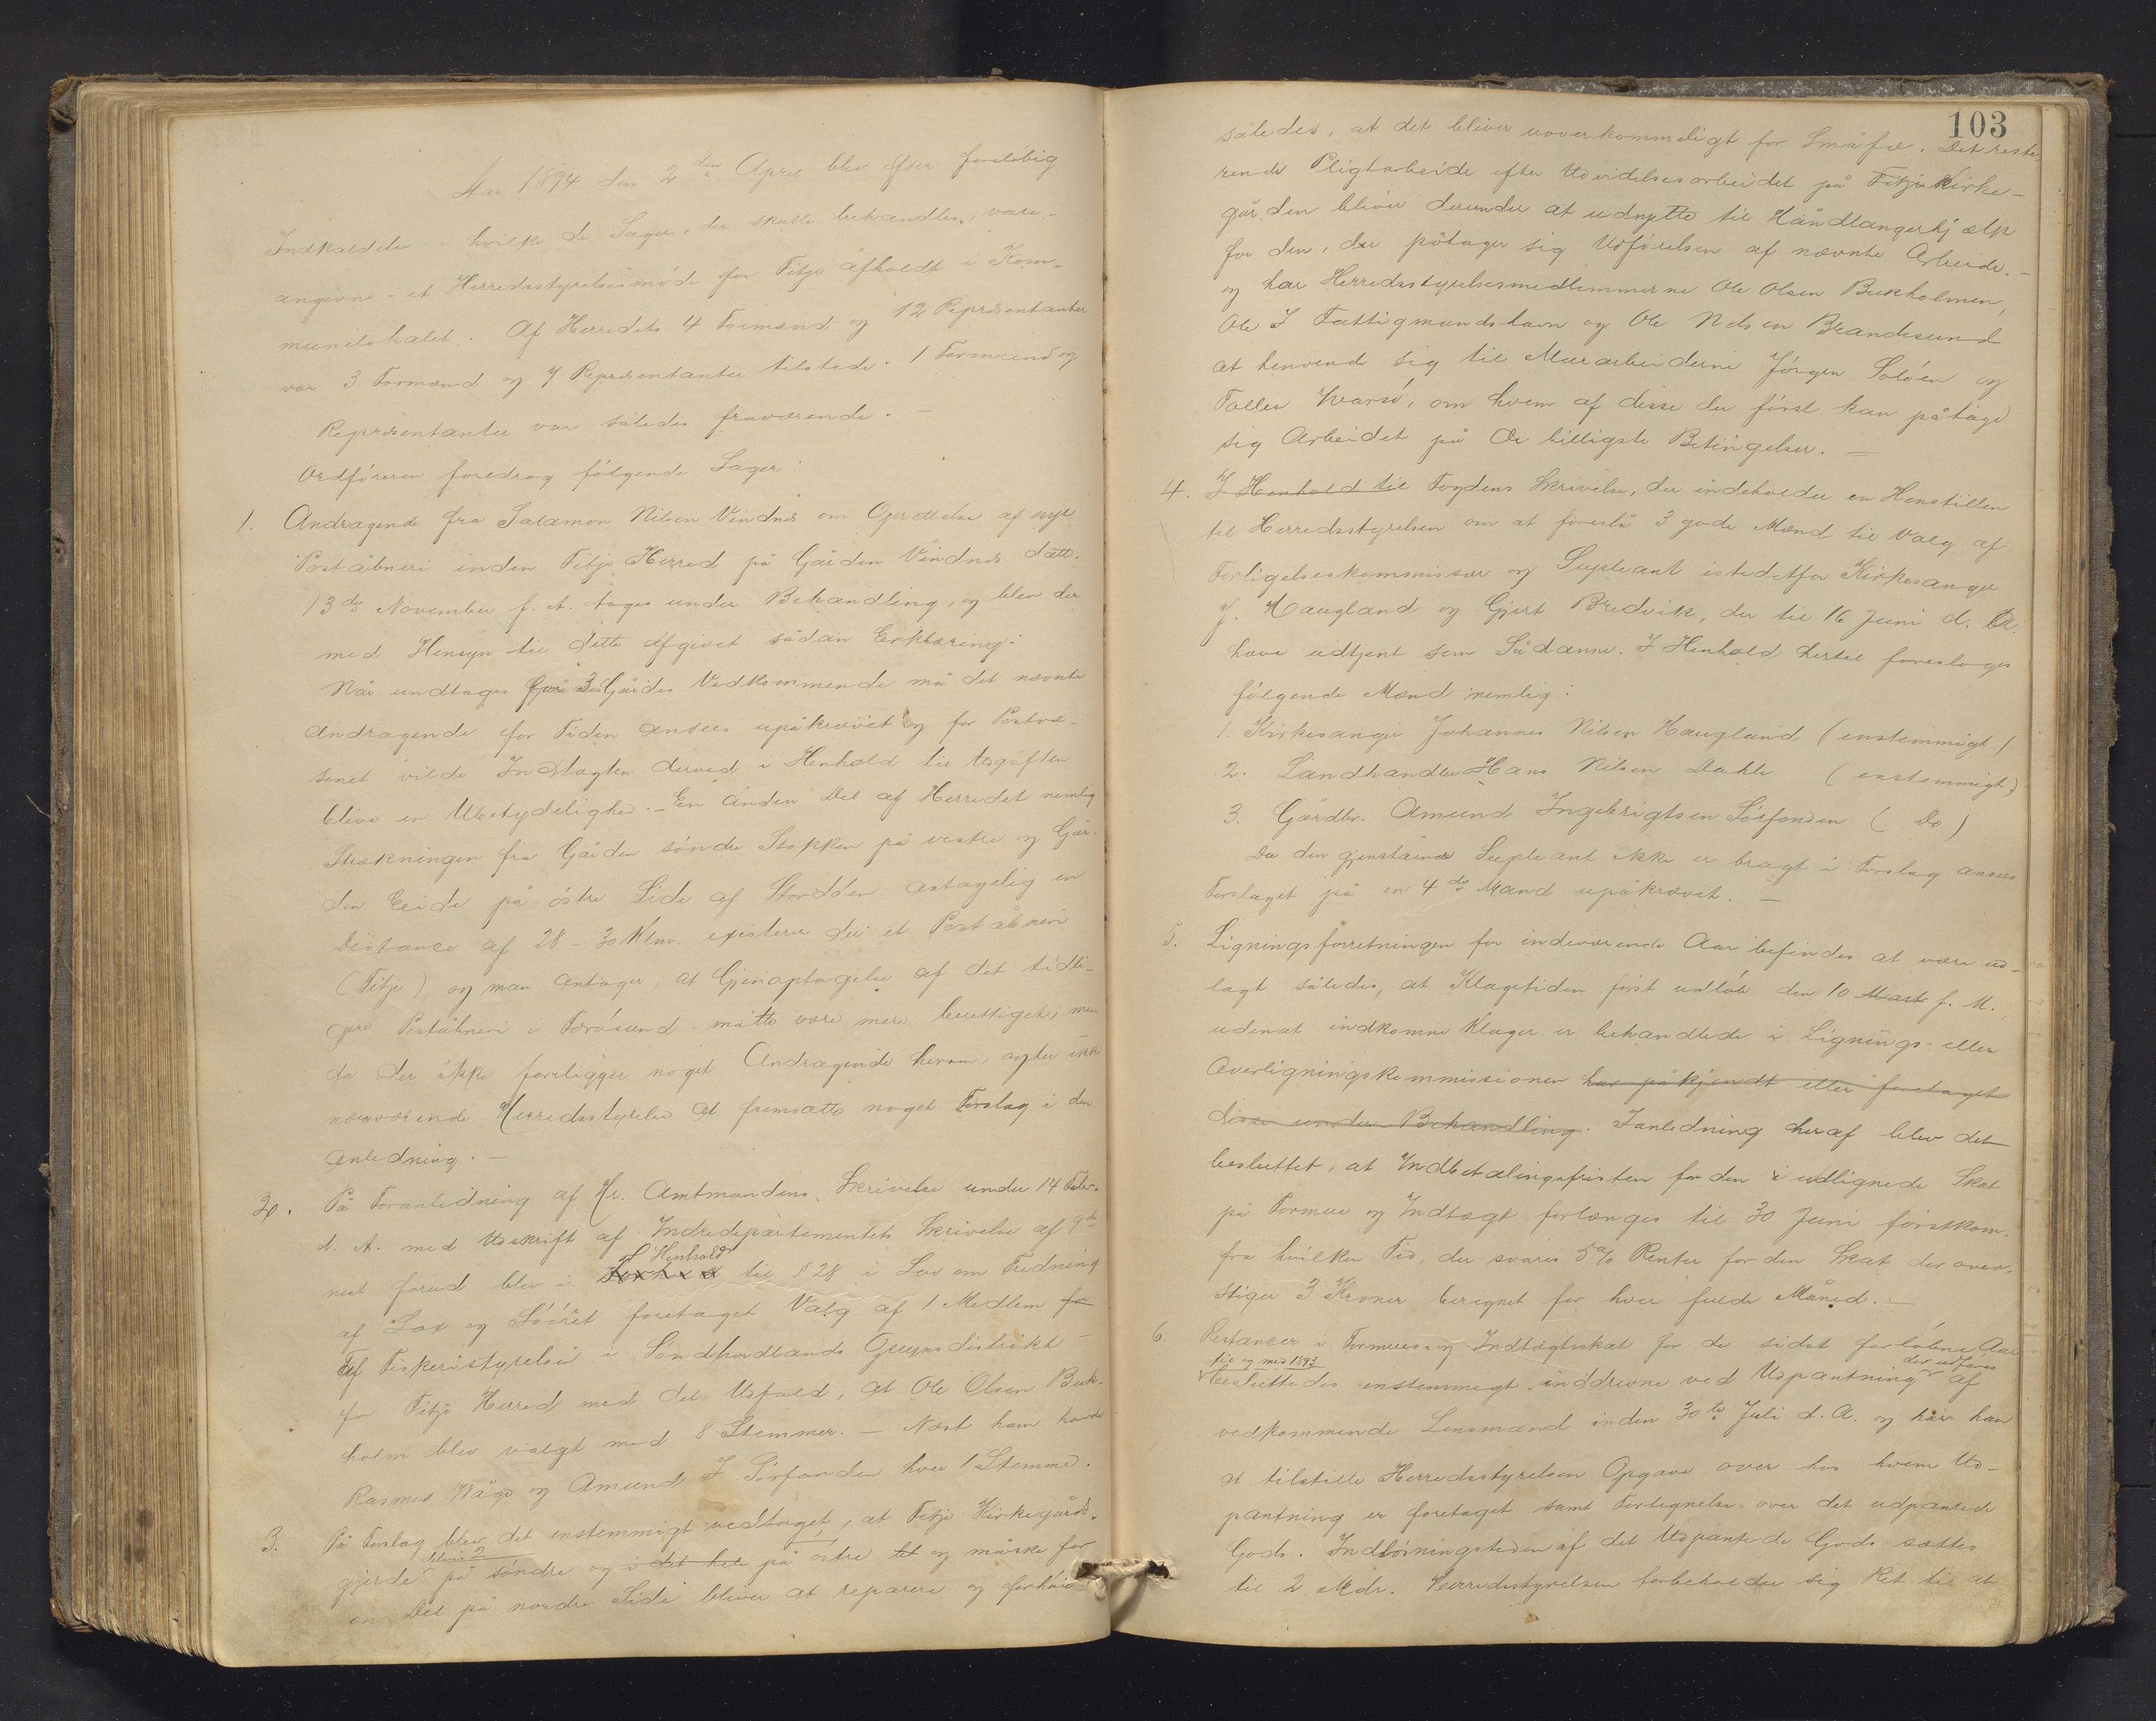 Aar 1894 den 2den April blev efter foreløbig
Indkaldelse i hvilke de Sager, der skulle behandles, vare
angivne – et Herredsstyrelsesmøde for Fitje afholdt i Kom-
munelokalet. Af Herredets 4 Formænd og 12 Repræsentanter
var 3 Formænd og 7 Repræsentanter tilstede. 1 Formand og
Repræsentanter var således fraværende. –
Ordføreren foredrog følgende Sager:
1. Andragende fra Salamon Nilsen Vindnes om Oprettelse af nyt
Poståbneri inden Fitje Herred på Gården Vindnes datt.
13de November f. A. toges under Behandling, og blev der
med Hensyn til dette afgivet sådan Erklæring:
Når undtages 3 Gårdes Vedkommende må det nævnte
Andragende for Tiden ansees upåkrævet og for Postvæ-
senet vilde Indtægten derved i Henhold til Udgiften
blive en Ubetydelighed. – En anden Del af Herredet nemlig
Strækningen fra Gården søndre Stokken på vestre og Går-
den Eide på østre Side af Stordøen antagelig en
Distance af 28 – 30 Klm. existerer der et Poståbneri
(Fitje), og man antager, at Gjenoptagelse af det tidli-
gere Poståbneri i Færøsund måtte være mere berettiget, men
da der ikke foreligger noget Andragende herom, agter ikke
nærværende Herredsstyrelse at fremsætte noget Forslag i den
Anledning. –
2. På Foranledning af Hr. Amtmandens Skrivelse under 14 Febr.
d. A. med Udskrift af Indredepartementets Skrivelse af 9de
næst forud blev i Henhold til § 28 i Lov om Fredning
af Lax og Søørret foretaget Valg af 1 Medlem for
af Fiskeristyrelsen i Søndhordlands Opsynsdistrikt –
for Fitje Herred med det Udfald, at Ole Olsen Buk-
holm blev valgt med 8 Stemmer. – Næst ham havde
Rasmus Våge og Amund I Sørfonden hver 1 Stemme.
3. På Forslag blev det enstemmigt vedtaget, at Fitje Kirkegårds-
gjerde på søndre og i det hele på østre og måske for
en Del på nordre Side bliver at reparere og forhøie
103
således, at det bliver uoverkommeligt for Småfæ. Det reste-
rende Pligtarbeide efter Udvidelsesarbeidet på Fitje Kirke-
gård den bliver derunder at udnytte til Håndlangerhjælp
for den, der påtager sig Udførelsen af nævnte Arbeide. –
og har Herredsstyrelsesmedlemmerne Ole Olsen Bukholmen,
Ole I Fattigmandshavn og Ole Nilsen Brandesund
at henvende sig til Murarbeiderne Jørgen Soløen og
Tollev Ivarsø, om hvem af disse der først kan påtage
sig Arbeidet på de billigste Betingelser. –
4. I Henhold til Fogdens Skrivelse, der indeholder en Henstillen
til Herredsstyrelsen om at foreslå 3 gode Mænd til Valg af
Forligelseskommissær og Supleant istedetfor Kirkesanger
J. Haugland og Gjert Bredvik, der til 16 Juni d. A.
have udtjent som Sådanne. I Henhold hertil foresloges
følgende Mænd nemlig:
1. Kirkesanger Johannes Nilsen Haugland (enstemmigt)
2. Landhandler Hans Nilsen Dahle (enstemmigt)
3. Gårdbr. Amund Ingebrigtsen Sørfonden ( Do )
Da den gjenstående Supleant ikke er bragt i Forslag ansees
Forslaget på en 4de Mand upåkrævet. –
5. Ligningsforretningen for indeværende Aar befindes at være ud-
lagt således, at Klagetiden først udløb den 10 Marts f. M.
udenat indkomne Klager er behandlede i Lignings- eller
Overligningskommissionen har påkjendt eller foretaget
disse under Behandling. I anledning heraf blev det
besluttet, at Indbetalingsfristen for den udlignede Skat
på Formue og Indtægt forlænges til 30 Juni førstkom.
fra hvilken Tid, der svares 5% Renter for den Skat der over-
stiger 3 Kroner beregnet for hver fulde Måned. –
6. Restancer i Formues og Indtægtsskat for de sidst forløbne Aar
til og med 1893 besluttedes enstemmigt inddrevne ved Udpantning der udføres af
vedkommende Lensmand inden 30te Juli d. A. og har han
at tilstille Herredsstyrelsen Opgave over hos hvem Ud-
pantning er foretaget samt Fortegnelse over det udpantede
Gods. Indløsningstiden af det Udpantede Gods sættes
til 2 Mdr. Herredsstyrelsen forbeholder sig Ret til at